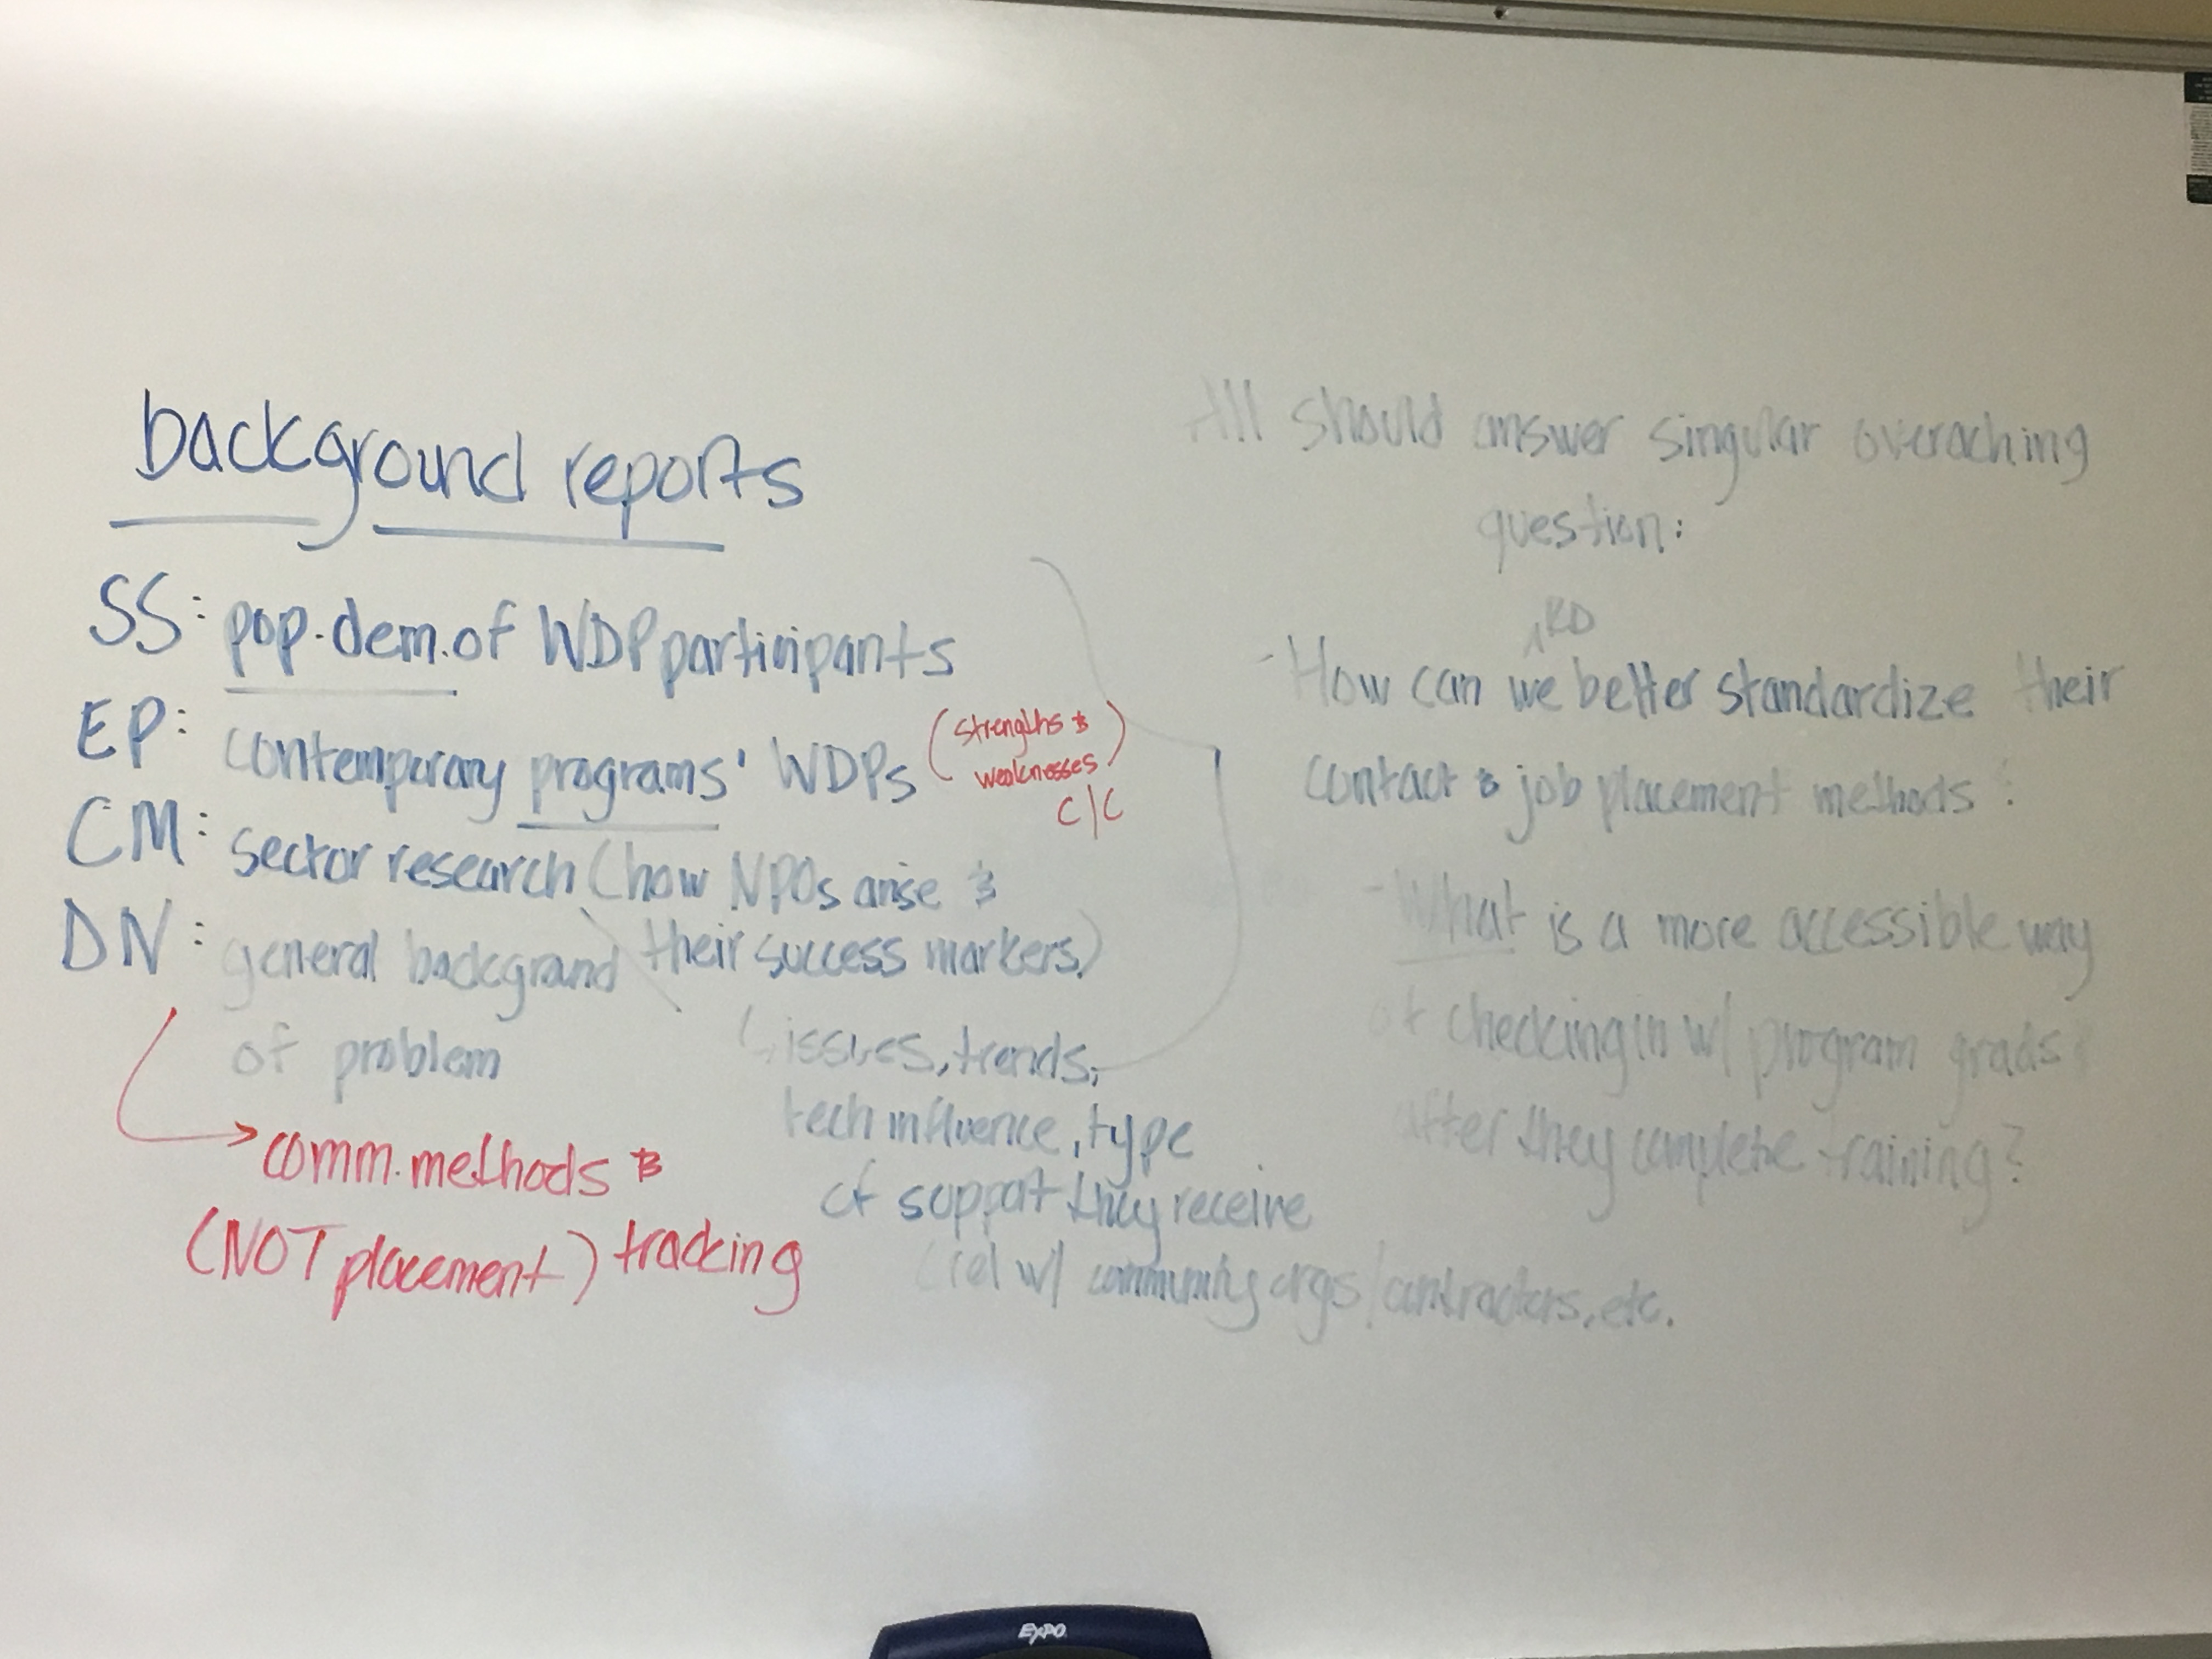 background reports
SS: pop. dem. of WDP participants
EP: contemporary programs' WDPs (strengths &
weaknesses)
C/C
CM: sector research (how NPOs arise &
their success markers)
DN: general background
of problem
issues, trends,
tech influence, type
of support they receive
(rel w/ community orgs/contractors, etc.
comm. methods &
(NOT placement) tracking
All should answer singular overaching
question:
RD
- How can we better standardize their
contact & job placement methods?
- What is a more accessible way
of checking in w/ program grads
after they complete training?
EXPO